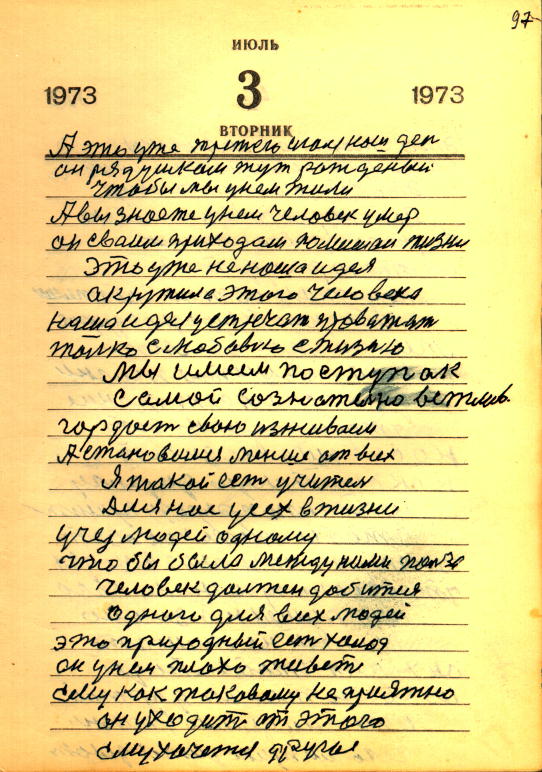 97
ИЮЛЬ
1973 3 1973
ВТОРНИК
А это уже наш дед
он рядушком тут рожденый
чтобы мы унем жили
А вы знаете унем человек умер
он сваим приходам помешал жизни
Это уже не наша идея
акружила этого человека
наша идея устречат проважат
толко с любовю с жизю
мы имеем поступак
самой сознателно вежлив.
гордост свою изживаем
А становимся менше от всех
Я такой ест учител
для нас усех в жизни
учу людей одному
что бы была между нами полза
человек должен добится
одного для всех людей
это природный ест холод
он унем плохо живет
ему как таковому не приятно
он уходит от этого
ему хочется другое